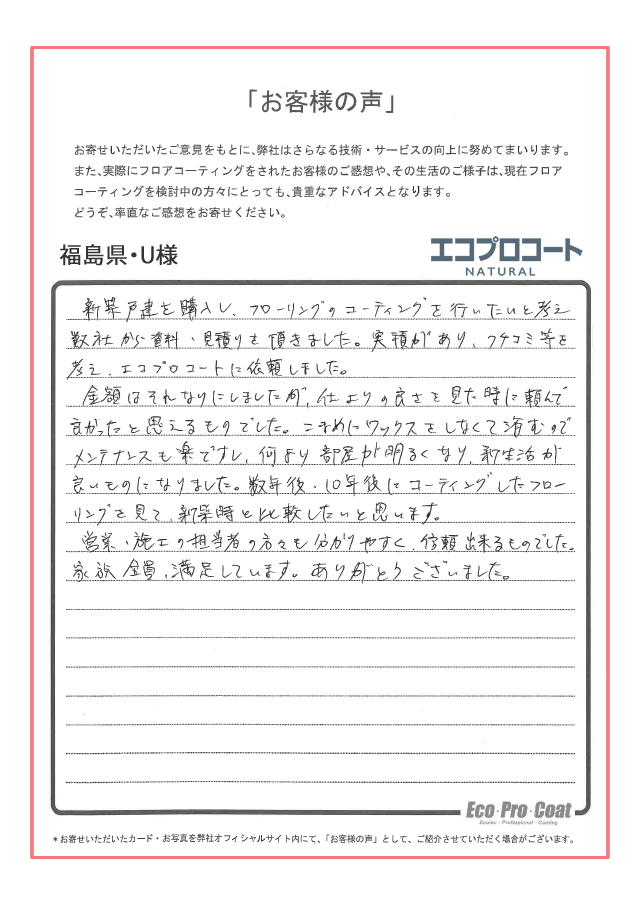 「お客様の声」
お寄せいただいたご意見をもとに、弊社はさらなる技術・サービスの向上に努めてまいります。
また、実際にフロアコーティングをされたお客様のご感想や、その生活のご様子は、現在フロア
コーティングを検討中の方々にとっても、貴重なアドバイスとなります。
どうぞ、率直なご感想をお寄せください。
福島県・U様
エコプロコート
NATURAL
新築戸建を購入し、フローリングのコーティングを行いたいと考え
数社から資料・見積りを頂きました。実積があり、クチコミ等を
考え、エコプロコートに依頼しました。
金額はそれなりにしましたが、仕上りの良さを見た時に頼んで
良かったと思えるものでした。こまめにワックスをしなくて済むので
メンテナンスも楽ですし、何より部屋が明るくなり、新生活が
良いものになりました。数年後・10年後にコーティングしたフロー
リングを見て、新築時と比較したいと思います。
営業・施工の担当者の方々も分かりやすく、信頼出来るものでした。
家族全員、満足しています。ありがとうございました。
Eco・Pro・Coat
Ecolec・Professional・Coating
*お寄せいただいたカード・お写真を弊社オフィシャルサイト内にて、「お客様の声」として、ご紹介させていただく場合がございます。